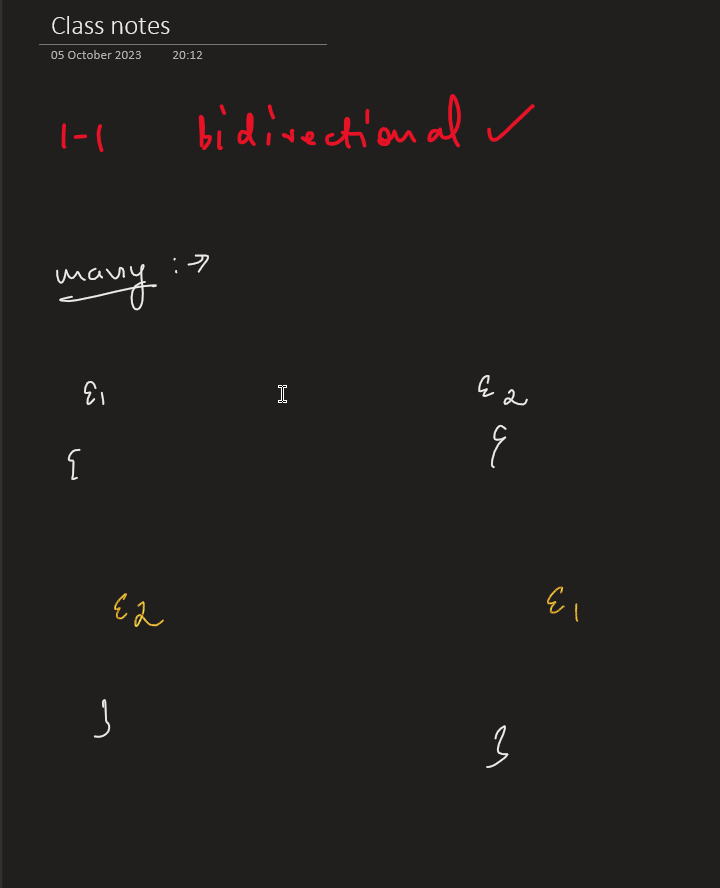 Class notes
05 October 2023 20:12
1-1 bidirectional ✓
many :→
E1 E2
{ {
E2 E1
} }